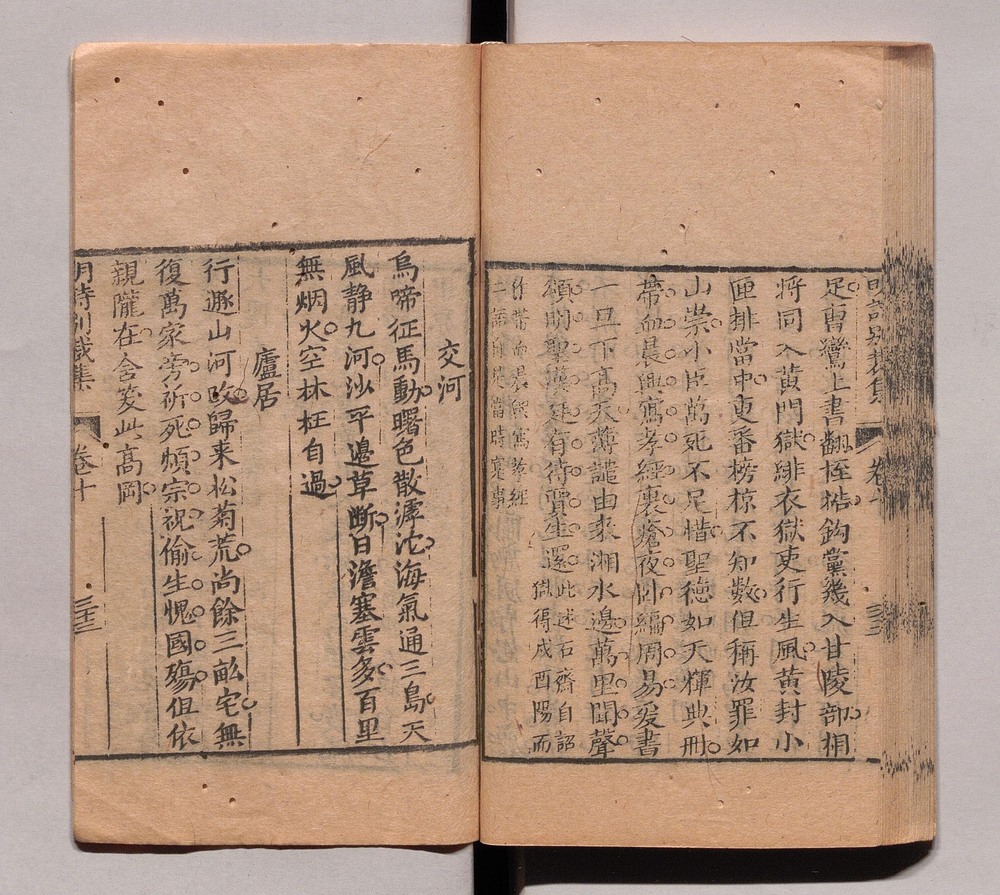 足曹鸞上書翻桎梏鈎黨幾入甘陵部桐
將同入黃門獄緋衣獄吏行生風黃封小
匣排當中吏番榜椋不知數但稱汝罪如
山崇小臣萬死不足惜聖德如天輝典刑
帶血晨興寫孝經裹瘡夜卧編周易爰書
一旦下高天薄譴由來湘水邊萬里聞聲
頌明聖漢廷有待賈生還
此述石齋自詔
獄得戍酉陽而
作帶血晨興寫孝經
二語自是當時實事
明詩別裁集
卷十
三十三
交河
烏啼征馬動曙色散滹沱海氣通三島天
風静九河沙平邉草断日澹塞雲多百里
無烟火空林枉自過
廬居
行遯山河改歸来松菊荒尚餘三畝宅無
復萬家旁祈死煩宗祝偷生愧國殤但依
親隴在舍爰此高岡
明詩別裁集
卷十